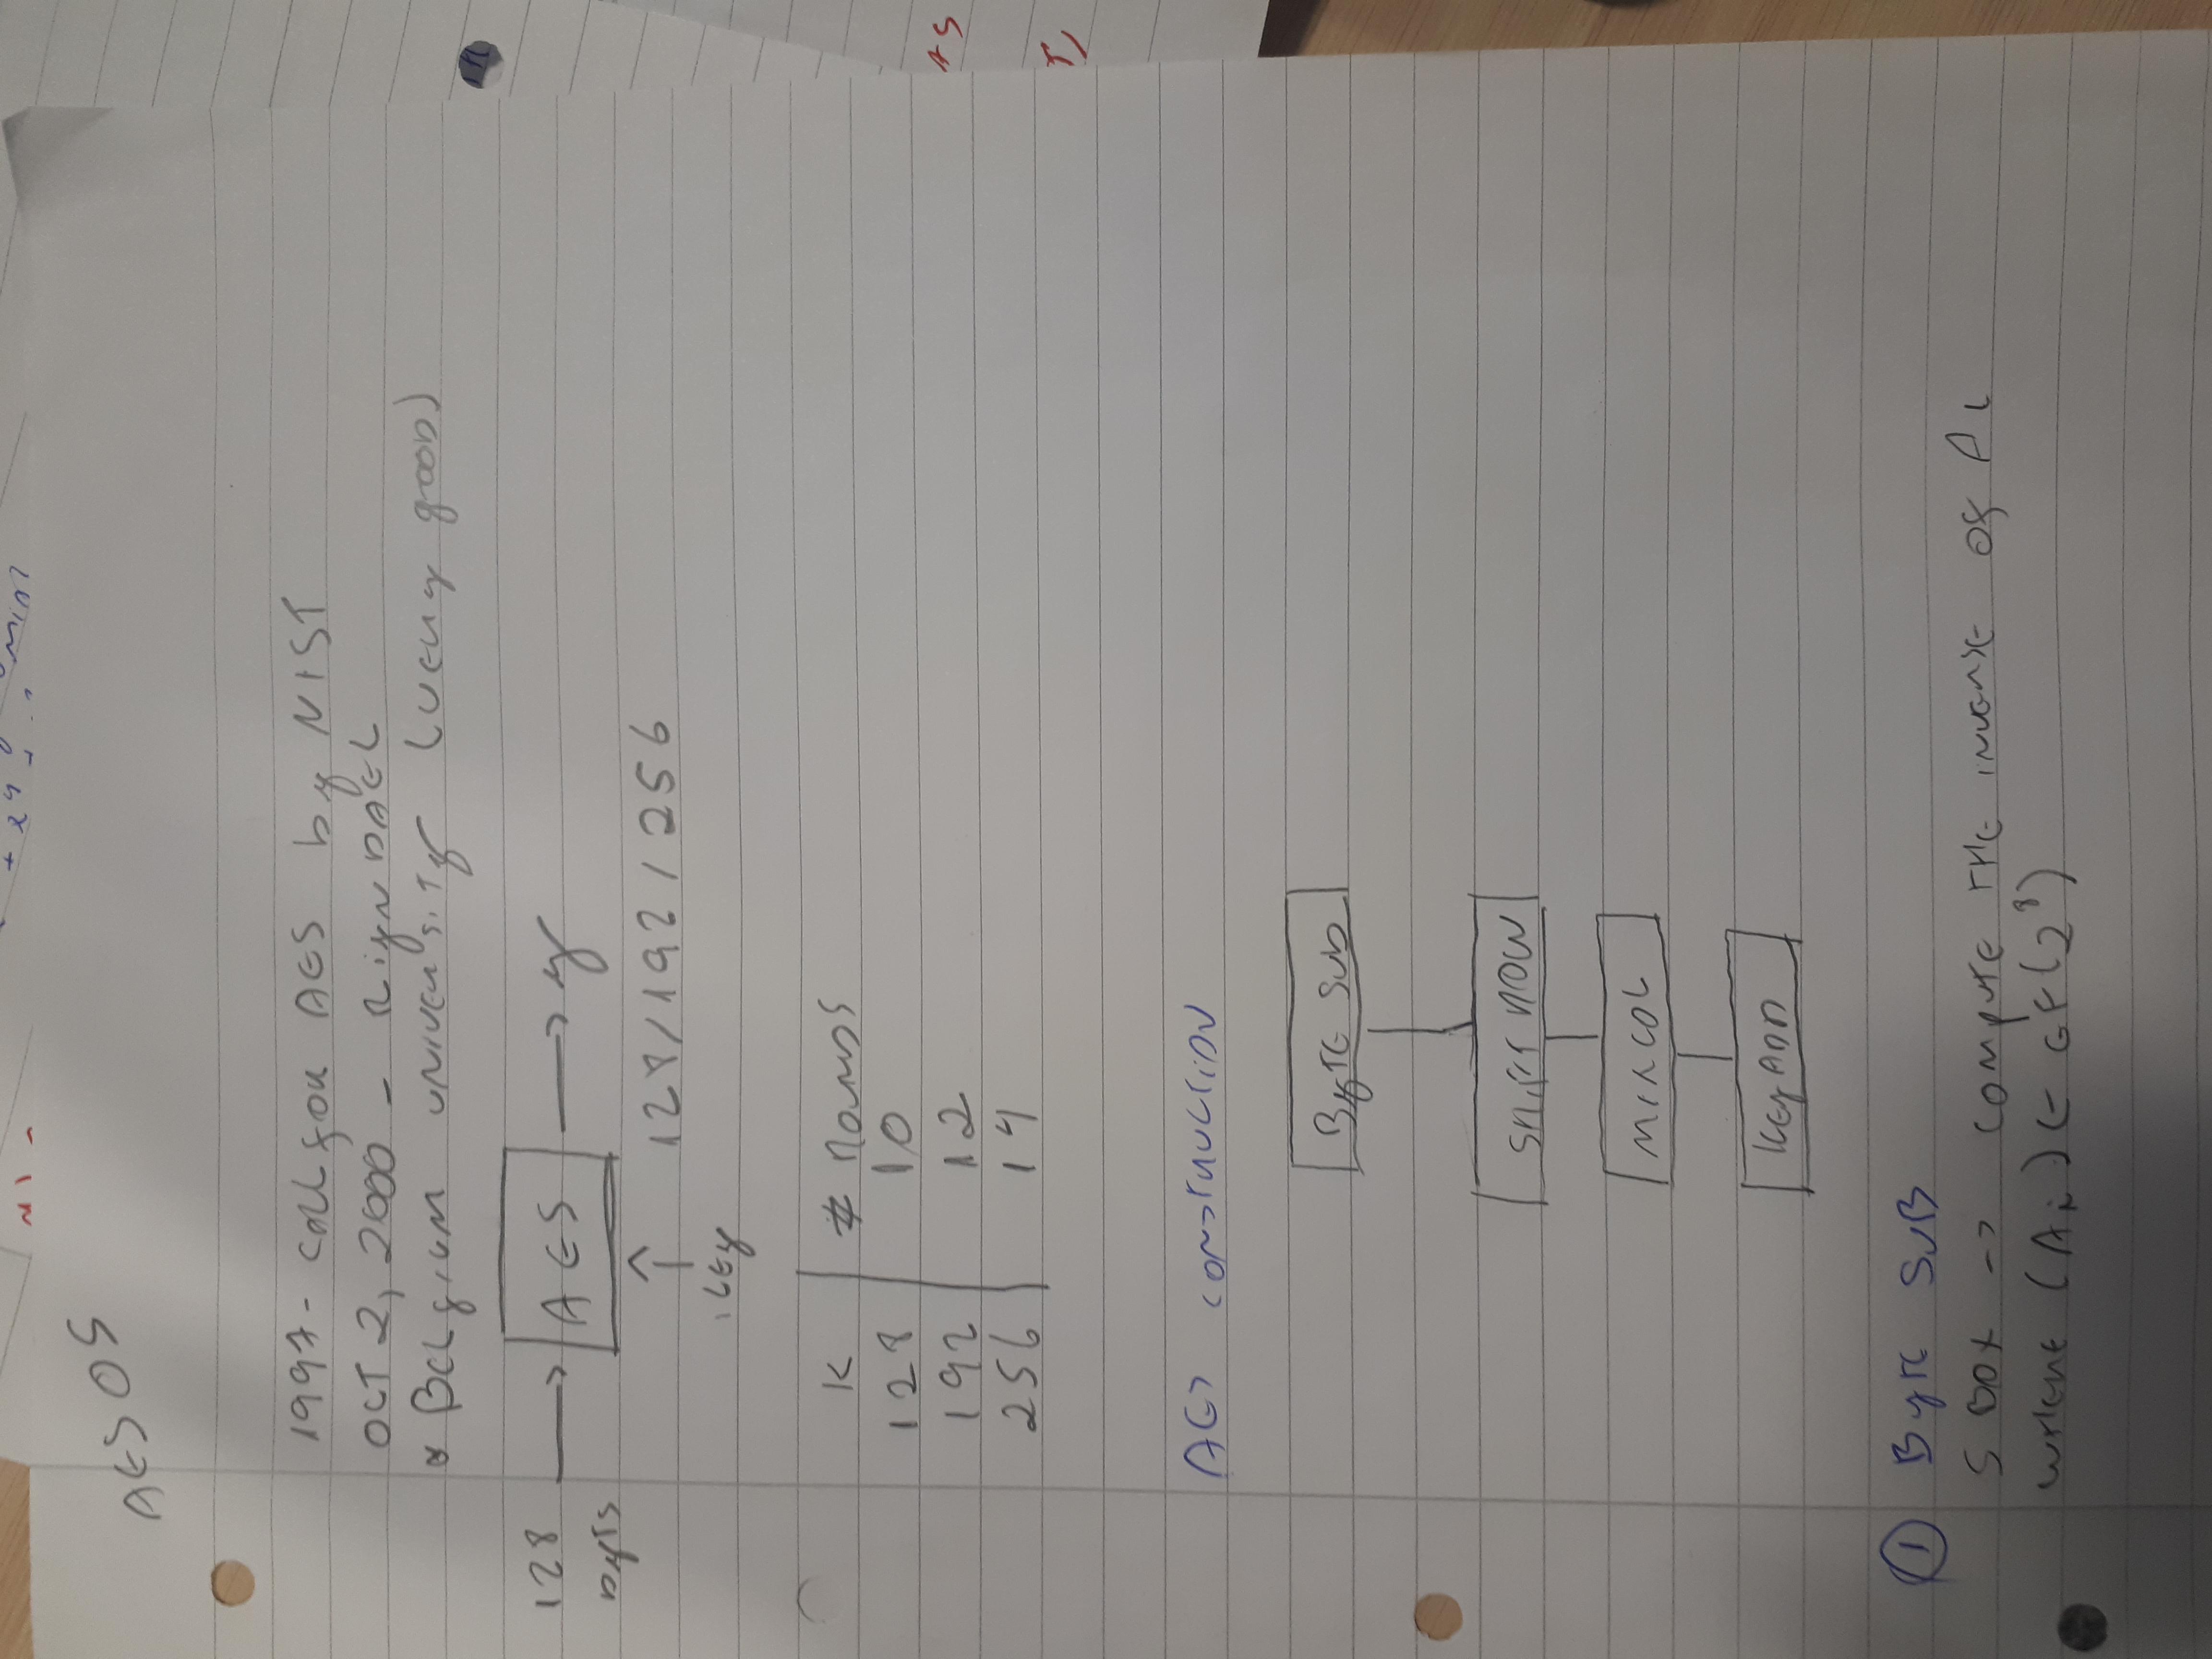 AES OS
1997 - call for AES by NIST
OCT 2, 2000 - RijNDAEL
* Belgium university (very good)
128 → AES → y
byts
128/192/256
↑
key
K | # rounds
128 | 10
192 | 12
256 | 14
AES construction
Byte sub
Shift row
Mixcol
Key Add
① Byte SUB
S Box -> compute the inverse of Ai
where (Ai) ∈ GF(2⁸)